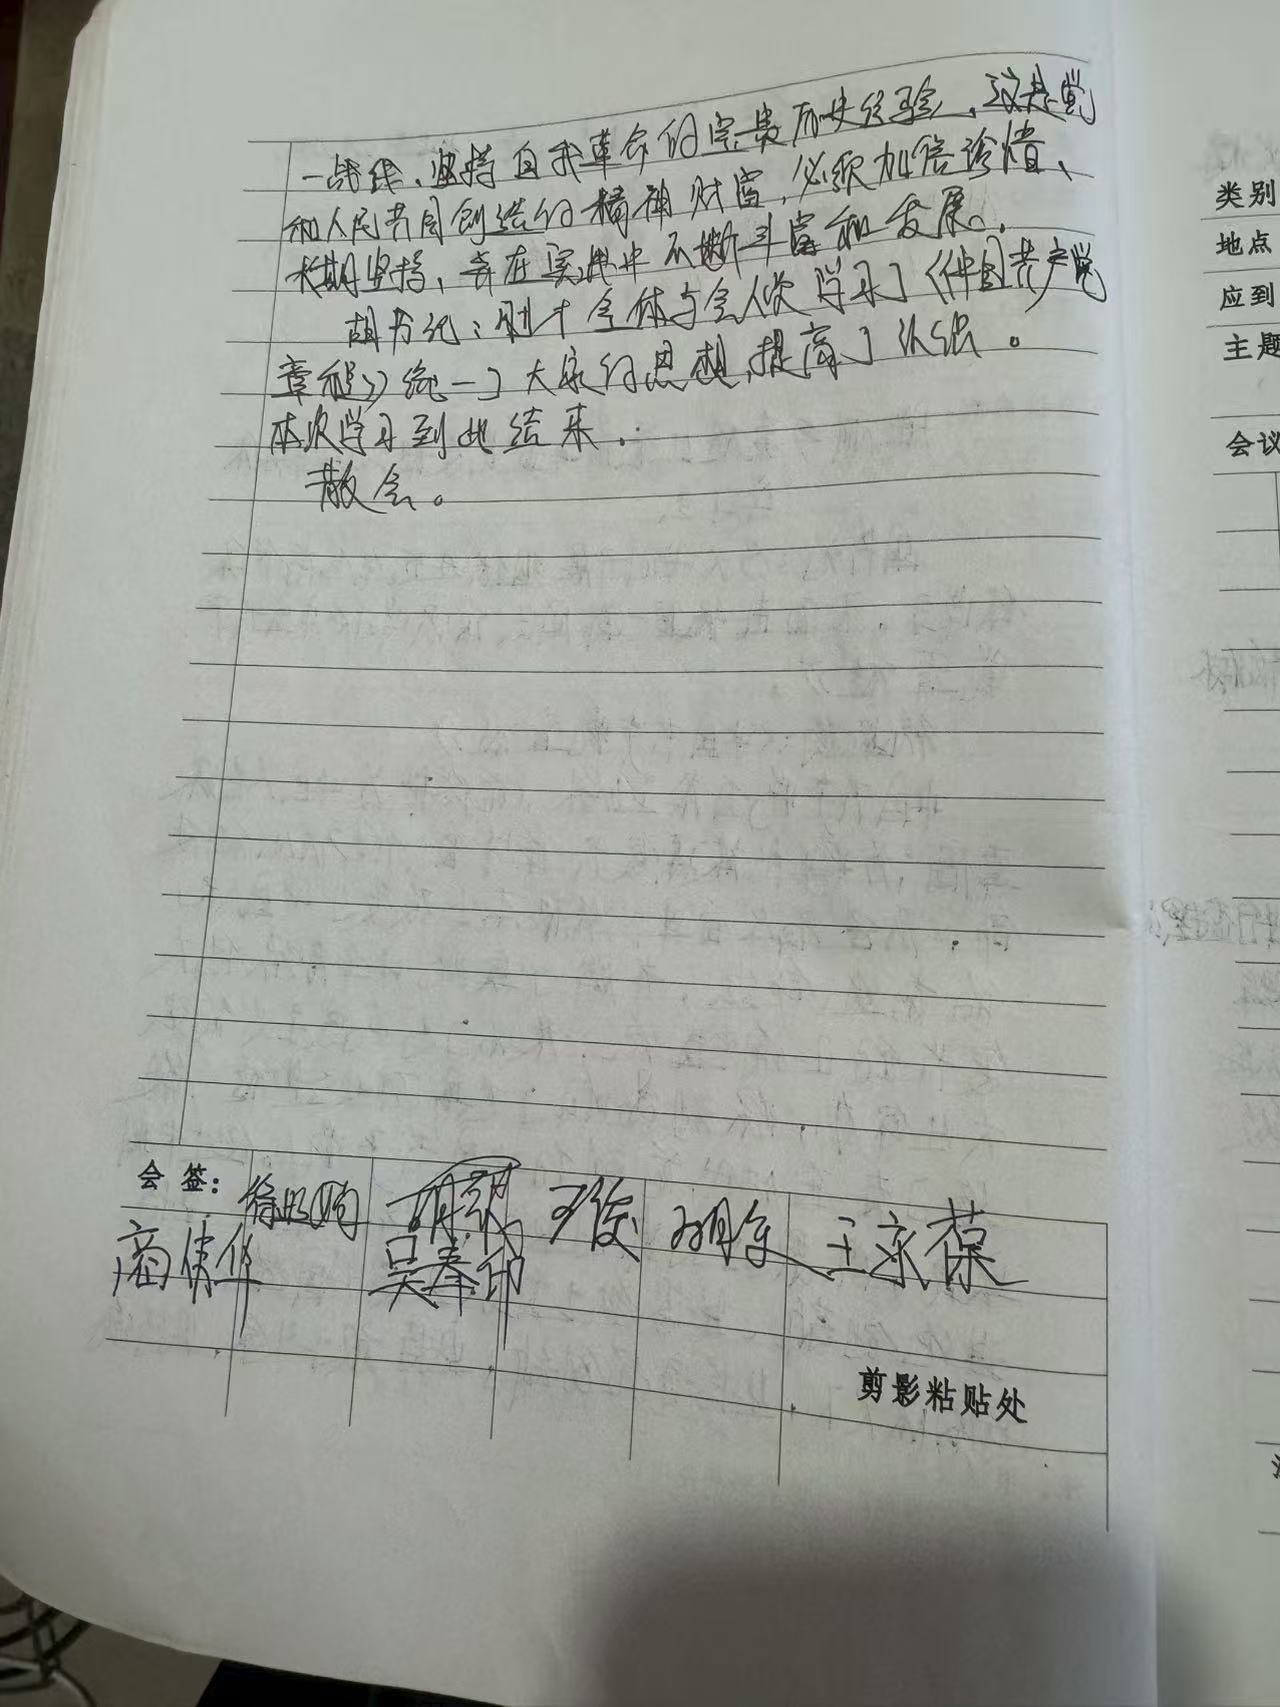 一战线、坚持自我革命的宝贵历史经验，这是党
和人民共同创造的精神财富，必须加倍珍惜、
长期坚持，并在实践中不断丰富和发展。
胡书记：刚才全体与会人员学习了《中国共产党
章程》统一了大家的思想，提高了认识。
本次学习到此结束。
散会。
会 签：
商倩华
吴奉印
王俊
王京葆
剪影粘贴处
类别
地点
应到
主题
会议